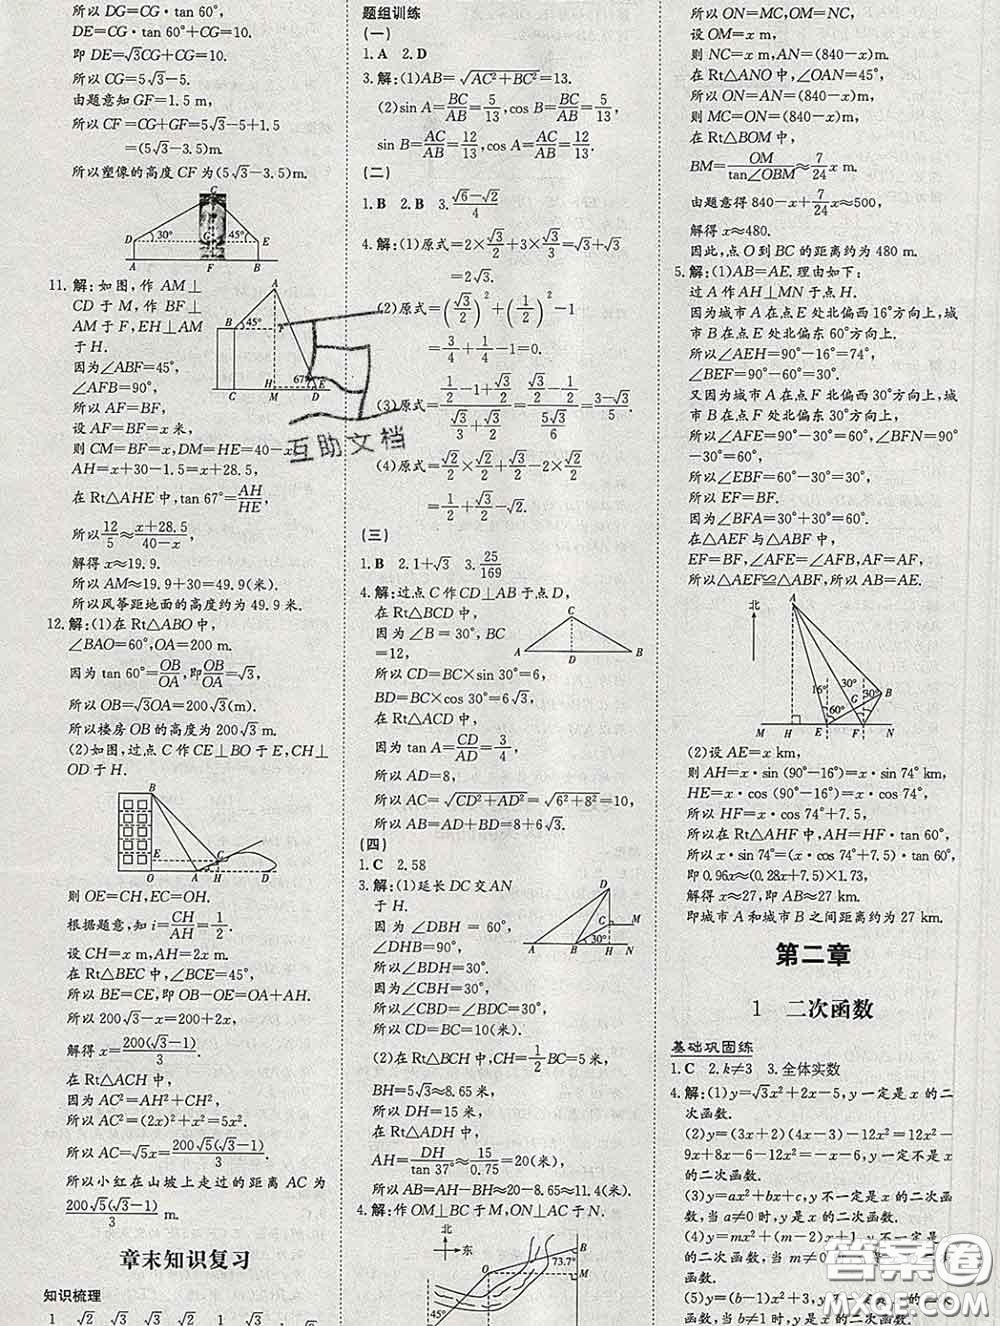 所以 DG=CG·tan 60°=√3CG.
DE=CG·tan 60°+CG=10.
即 DE=√3CG+CG=10.
所以 CG=5√3-5.
由题意知 GF=1.5 m,
所以 CF=CG+GF=5√3-5+1.5
=(5√3-3.5)m.
所以塑像的高度 CF 为(5√3-3.5)m.
C
D 30° G 45° E
A F B
11.解:如图,作 AM⊥
CD 于 M,作 BF⊥
AM 于 F,EH⊥AM
于 H.
因为∠ABF=45°,
∠AFB=90°,
所以 AF=BF,
A
B 45° F
67° E
C M D
H
设 AF=BF=x 米,
则 CM=BF=x 米,DM=HE=40-x
AH=x+30-1.5=x+28.5,
在 Rt△AHE 中,tan 67°=AH/HE,
所以12/5≈(x+28.5)/(40-x).
解得 x≈19.9.
所以 AM≈19.9+30=49.9(米).
所以风筝距地面的高度约为 49.9 米.
12.解:(1)在 Rt△ABO 中,
∠BAO=60°,OA=200 m.
因为 tan 60°=OB/OA,即OB/OA=√3,
所以 OB=√3OA=200√3(m).
所以楼房 OB 的高度为 200√3 m.
(2)如图,过点 C 作 CE⊥BO 于 E,CH⊥
OD 于 H.
B
E C
O A H D
则 OE=CH,EC=OH.
根据题意,知 i=CH/AH=1/2.
设 CH=x m,AH=2x m.
在 Rt△BEC 中,∠BCE=45°,
所以 BE=CE,即 OB-OE=OA+AH.
所以 200√3-x=200+2x,
解得 x=200(√3-1)/3.
在 Rt△ACH 中,
因为 AC²=AH²+CH²,
所以 AC²=(2x)²+x²=5x².
所以 AC=√5x=200√5(√3-1)/3.
所以小红在山坡上走过的距离 AC 为
200√5(√3-1)/3 m.
章末知识复习
知识梳理
题组训练
(一)
1.A 2.D
3.解:(1)AB=√(AC²+BC²)=13.
(2)sin A=BC/AB=5/13,cos B=BC/AB=5/13,
sin B=AC/AB=12/13,cos A=AC/AB=12/13.
(二)
1.B 2.B 3.(√6-√2)/4
4.解:(1)原式=2×√3/2+3×√3/3=√3+√3
=2√3.
(2)原式=(√3/2)²+(1/2)²-1
=3/4+1/4-1=0.
(3)原式=(1/2-1+√3/2)/(√3/3+√3/2)=(√3/2-1/2)/(5√3/6)=(3-√3)/5.
(4)原式=√2/2×√2/2+√3/2-2×√2/2
=1/2+√3/2-√2.
互助文档
(三)
1.B 2.1+√3 3.25/169
4.解:过点 C 作 CD⊥AB 于点 D,
在 Rt△BCD 中,
因为∠B=30°,BC
=12,
C
A D B
所以 CD=BC×sin 30°=6,
BD=BC×cos 30°=6√3.
在 Rt△ACD 中,
tan A=CD/AD=3/4,
所以 AD=8,
所以 AC=√(CD²+AD²)=√(6²+8²)=10,
所以 AB=AD+BD=8+6√3.
(四)
1.C 2.58
3.解:(1)延长 DC 交 AN
于 H.
因为∠DBH=60°,
∠DHB=90°,
所以∠BDH=30°.
D
C M
30°
A B H N
因为∠CBH=30°,
所以∠CBD=∠BDC=30°.
所以 CD=BC=10(米).
(2)在 Rt△BCH 中,CH=1/2BC=5 米,
BH=5√3≈8.65 米.
所以 DH=15 米,
在 Rt△ADH 中,
AH=DH/tan 37°≈15/0.75=20(米),
所以 AB=AH-BH≈20-8.65≈11.4(米).
4.解:作 OM⊥BC 于 M,ON⊥AC 于 N.
北
东
B
73.7°
O M
45°
所以 ON=MC,OM=NC,
设 OM=x m,
则 NC=x m,AN=(840-x)m,
在 Rt△ANO 中,∠OAN=45°,
所以 ON=AN=(840-x)m,
则 MC=ON=(840-x)m,
在 Rt△BOM 中,
BM=OM/tan∠OBM≈7/24x m.
由题意得 840-x+7/24x≈500,
解得 x≈480.
因此,点 O 到 BC 的距离约为 480 m.
5.解:(1)AB=AE.理由如下:
过 A 作 AH⊥MN 于点 H.
因为城市 A 在点 E 处北偏西 16°方向上,城
市 B 在点 E 处北偏东 60°方向上.
所以∠AEH=90°-16°=74°,
∠BEF=90°-60°=30°.
又因为城市 A 在点 F 北偏西 30°方向上,城
市 B 在点 F 处北偏东 30°方向上.
所以∠AFE=90°-30°=60°,∠BFN=90°
-30°=60°.
所以∠EBF=60°-30°=30°.
所以 EF=BF.
因为∠BFA=30°+30°=60°,
在△AEF 与△ABF 中,
EF=BF,∠AFE=∠AFB,AF=AF,
所以△AEF≌△ABF,所以 AB=AE.
北
A
16° 30° 30° B
G
60°
M H E F N
(2)设 AE=x km,
则 AH=x·sin (90°-16°)=x·sin 74° km,
HE=x·cos (90°-16°)=x·cos 74°,
所以 HF=x·cos 74°+7.5,
所以在 Rt△AHF 中,AH=HF·tan 60°,
所以 x·sin 74°=(x·cos 74°+7.5)·tan 60°,
即 0.96x≈(0.28x+7.5)×1.73,
解得 x≈27,即 AB≈27 km.
即城市 A 和城市 B 之间距离约为 27 km.
第二章
1 二次函数
基础巩固练
1.C 2.k≠3 3.全体实数
4.解:(1)y=√3x²+2x-5,y 一定是 x 的二
次函数.
(2)y=(3x+2)(4x-3)-12x²=12x²-
9x+8x-6-12x²=-x-6,y 不是 x
的二次函数.
(3)y=ax²+bx+c,y 不一定是 x 的二次函
数,当 a≠0 时,y 是 x 的二次函数.
(4)y=mx²+(m-2)x+1,y 不一定是 x
的二次函数,当 m≠0
次函数.
答案圈
MXQE.COM